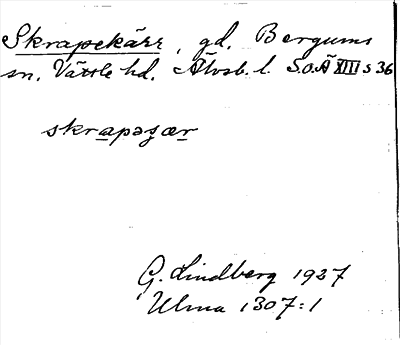 Skrapekärr, gd. Bergums
sn. Vättle hd. Älvsb. l. S.O.Ä XIII s 36
skrapəʒær
G. Lindberg 1927
Ulma 1307:1